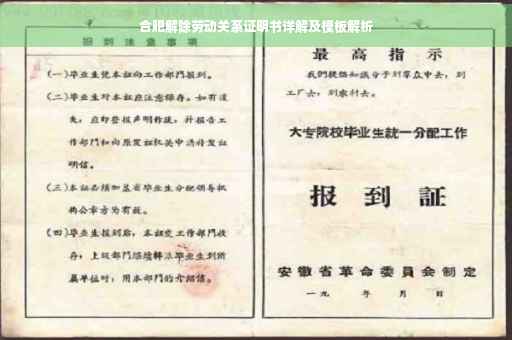 合肥解除劳动关系证明书详解及模板解析
报到注意事项
(一)毕业生凭本证向工作部門报到。
(二)毕业生对本证应注意保存。如有遺
失,应即登报声明作废,并报告工
作部門和向原发证机关申請补发证
明信。
(三)本证必须加盖省毕业生分配领导机
构公章方为有效。
(四)毕业生报到后,本证交工作部門收
存;上级部門
毕业生到所
属单位时,用本部門的介绍信。
最高指示
我們提倡知識分子到羣众中去,到
工厂去,到农村去。
大专院校毕业生統一分配工作
报到証
安徽省革命委員会制定
一九 年 月 日